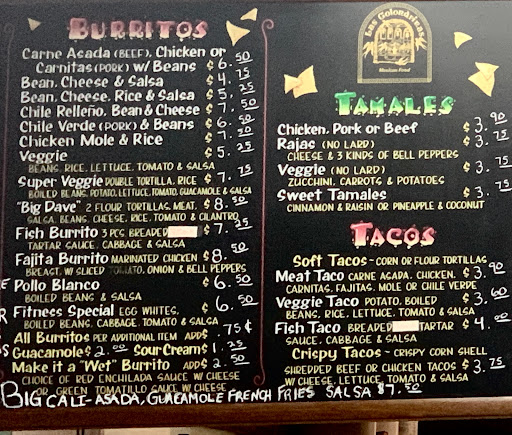 BURRITOS
Carne Asada (BEEF), Chicken or
Carnitas (PORK) w/ Beans $6.50
Bean, Cheese & Salsa $4.75
Bean, Cheese, Rice & Salsa $5.25
Chile Relleño, Bean & Cheese $7.50
Chile Verde (PORK) & Beans $6.50
Chicken Mole & Rice $7.20
Veggie $5.25
BEANS, RICE, LETTUCE, TOMATO & SALSA
Super Veggie DOUBLE TORTILLA, RICE $7.75
BOILED BEANS, POTATO, LETTUCE, TOMATO, GUACAMOLE & SALSA
"Big Dave" 2 FLOUR TORTILLAS, MEAT, $8.50
SALSA, BEANS, CHEESE, RICE, TOMATO & CILANTRO
Fish Burrito 3 PCS BREADED $7.25
TARTAR SAUCE, CABBAGE & SALSA
Fajita Burrito MARINATED CHICKEN $8.50
BREAST, W/ SLICED TOMATO, ONION & BELL PEPPERS
Pollo Blanco $6.50
BOILED BEANS & SALSA
Fitness Special EGG WHITES, $6.50
BOILED BEANS, CABBAGE, TOMATO & SALSA
All Burritos PER ADDITIONAL ITEM ADD $.75¢
Guacamole $2.00 Sour Cream $1.25
Make it a "Wet" Burrito ADD $2.50
CHOICE OF RED ENCHILADA SAUCE W/ CHEESE
OR GREEN TOMATILLO SAUCE W/ CHEESE
Las Golondrinas
Mexican Food
TAMALES
Chicken, Pork or Beef $3.90
Rajas (NO LARD) $3.75
CHEESE & 3 KINDS OF BELL PEPPERS
Veggie (NO LARD) $3.75
ZUCCHINI, CARROTS & POTATOES
Sweet Tamales $3.75
CINNAMON & RAISIN OR PINEAPPLE & COCONUT
TACOS
Soft Tacos - CORN OR FLOUR TORTILLAS
Meat Taco CARNE ASADA, CHICKEN, $3.90
CARNITAS, FAJITAS, MOLE OR CHILE VERDE
Veggie Taco POTATO, BOILED $3.60
BEANS, RICE, LETTUCE, TOMATO & SALSA
Fish Taco BREADED TARTAR $4.00
SAUCE, CABBAGE & SALSA
Crispy Tacos - CRISPY CORN SHELL
SHREDDED BEEF OR CHICKEN TACOS $3.75
W/ CHEESE, LETTUCE, TOMATO & SALSA
BIG CALI-ASADA, GUACAMOLE FRENCH FRIES SALSA $7.50